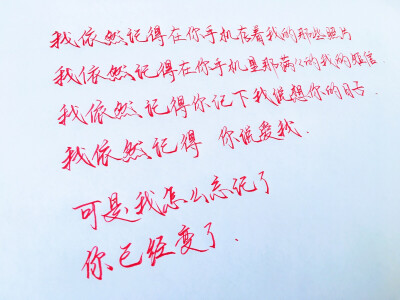 我依然记得在你手机店看我的那些照片
我依然记得在你手机里那满满的我的短信
我依然记得你记下我说想你的日子.
我依然记得 你说爱我.
可是我怎么忘记了
你已经变了.